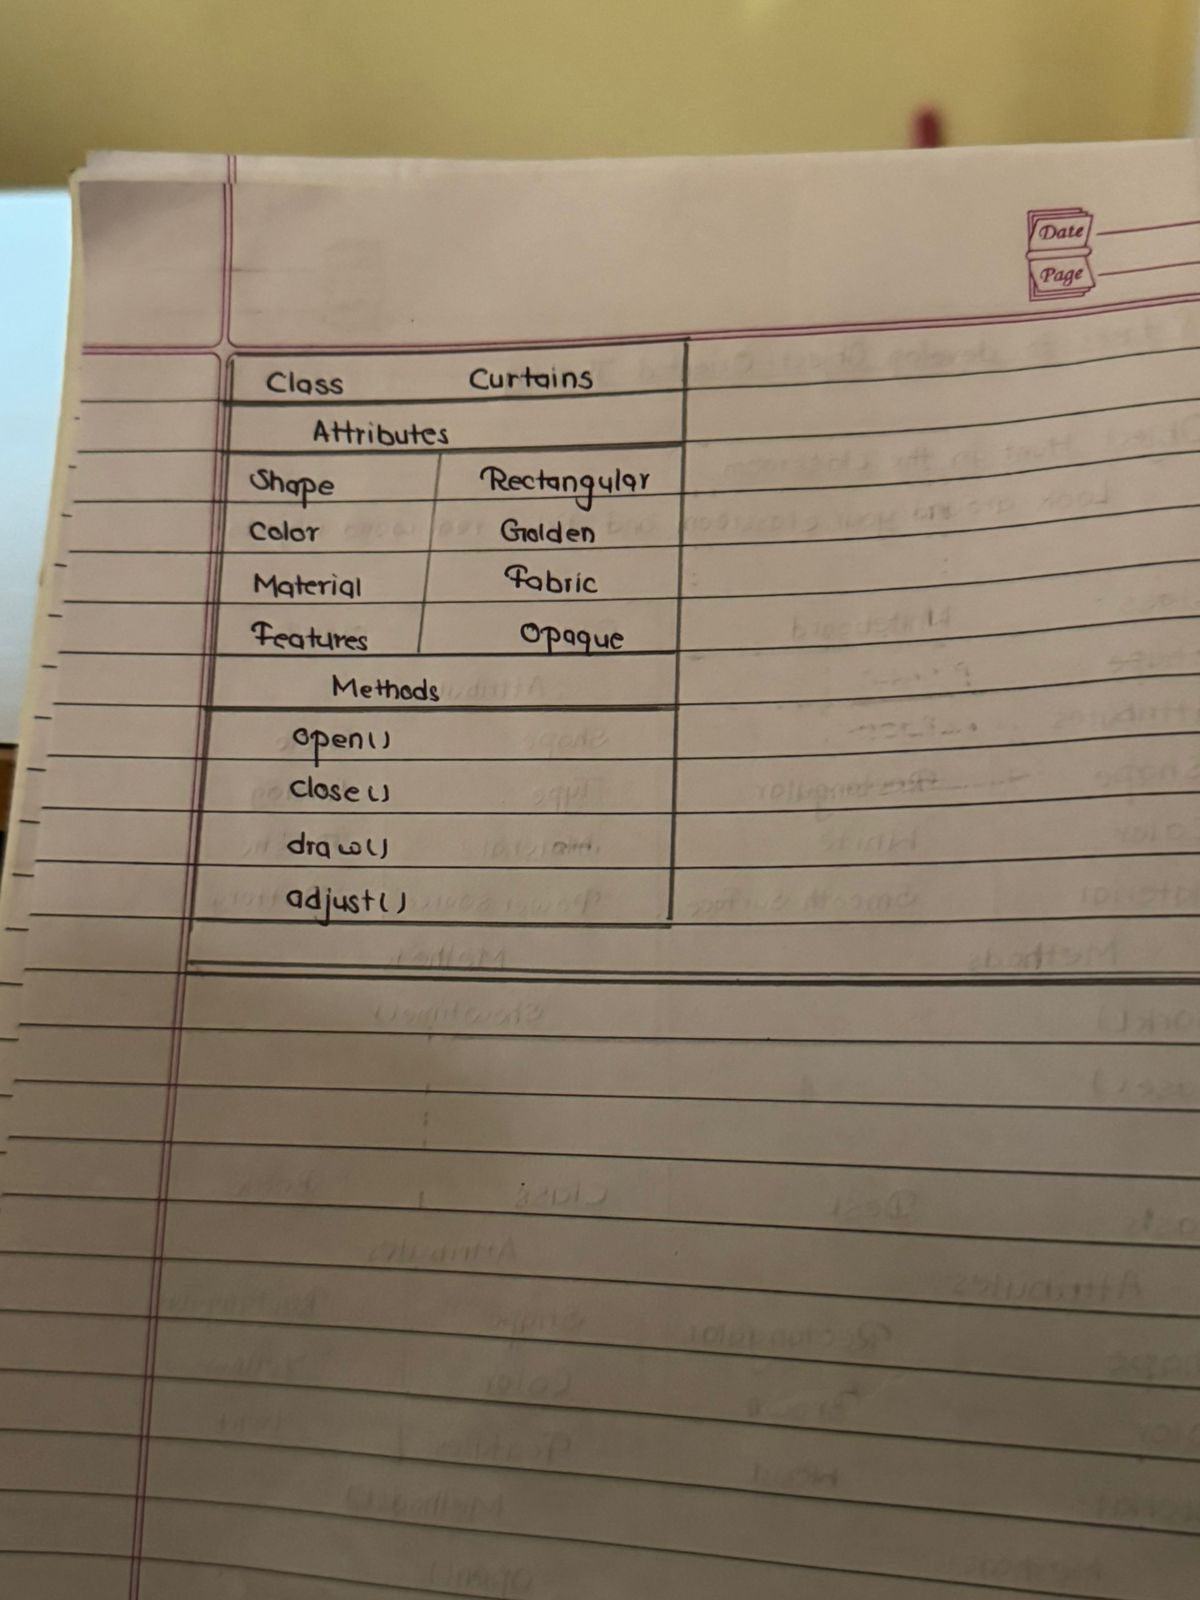 Date
Page
Class Curtains
Attributes
Shape Rectangular
Color Golden
Material Fabric
Features Opaque
Methods
open()
close()
draw()
adjust()